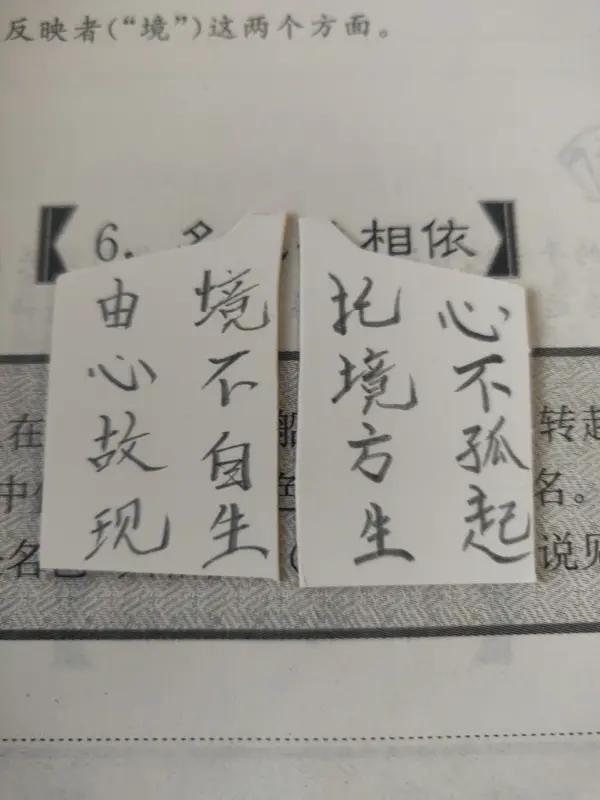 反映者(“境”)这两个方面。
6. 相依
心不孤起
托境方生
境不自生
由心故现
在 船 转起
中 色 名。
名色 ( 说见